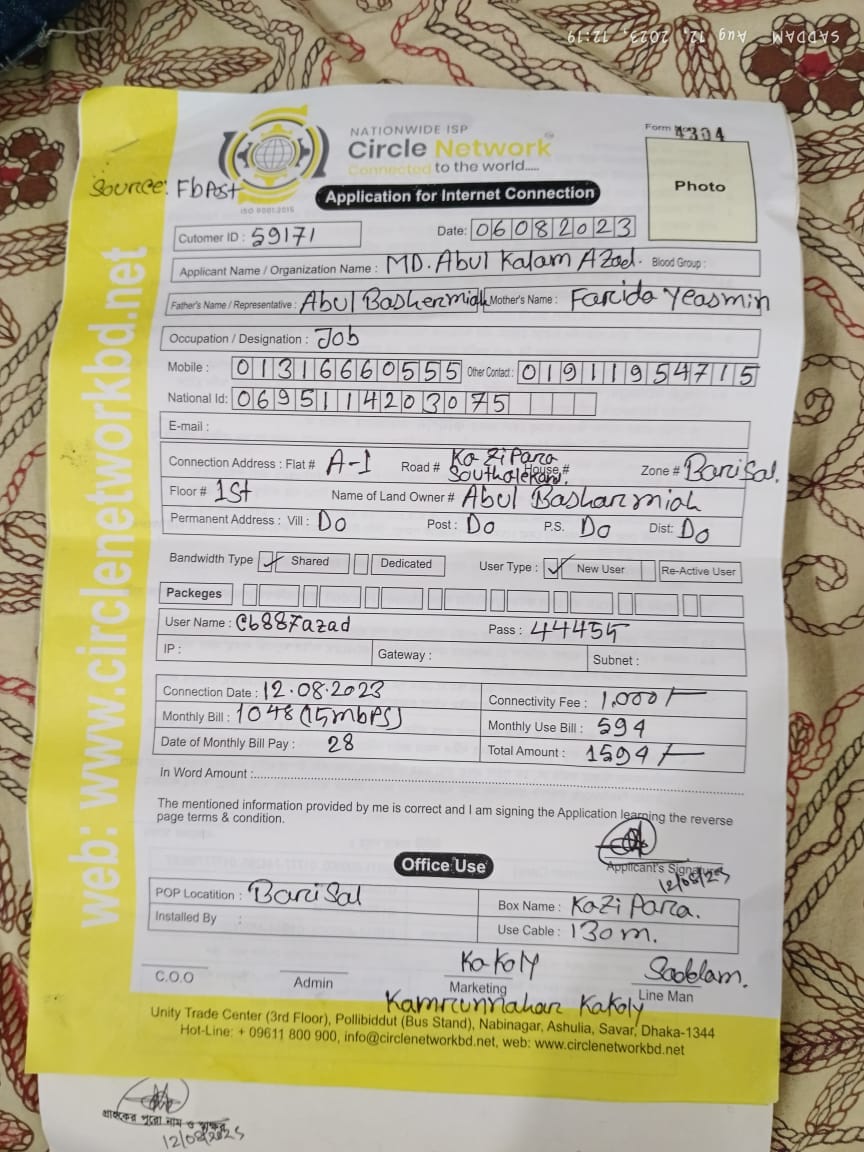 SADDAM Aug 12, 2023, 12:19
NATIONWIDE ISP
Circle Network
Connected to the world.....
ISO 9001:2015
Form No 4304
Photo
Source: Fb Post
Application for Internet Connection
Cutomer ID : 59171 Date: 06082023
Applicant Name / Organization Name : MD. Abul Kalam AZad. Blood Group :
Father's Name / Representative : Abul Basharmiah Mother's Name : Farida Yeasmin
Occupation / Designation : Job
Mobile : 01316660555 Other Contact : 01911954715
National Id: 0695114203075
E-mail :
Connection Address : Flat # A-1 Road # KaZi Para House # Zone # Barisal.
Floor # 1st Name of Land Owner # Abul Basharmiah
Permanent Address : Vill : Do Post : Do P.S. Do Dist: Do
Bandwidth Type Shared Dedicated User Type : New User Re-Active User
Packeges
User Name : Cb887azad Pass : 44455
IP : Gateway : Subnet :
Connection Date : 12.08.2023 Connectivity Fee : 1,000/-
Monthly Bill : 1048 (15mbPS) Monthly Use Bill : 594
Date of Monthly Bill Pay : 28 Total Amount : 1594/-
In Word Amount :
The mentioned information provided by me is correct and I am signing the Application learning the reverse
page terms & condition.
Applicant's Signature
12/08/23
Office Use
POP Locatition : Barisal Box Name : Kazi Para.
Installed By : Use Cable : 130m.
Kakoly Saddam.
C.O.O Admin Marketing Line Man
Kamrunnahar Kakoly
Unity Trade Center (3rd Floor), Pollibiddut (Bus Stand), Nabinagar, Ashulia, Savar, Dhaka-1344
Hot-Line: + 09611 800 900, info@circlenetworkbd.net, web: www.circlenetworkbd.net
web: www.circlenetworkbd.net
গ্রাহকের পুরো নাম ও স্বাক্ষর
12/08/2023